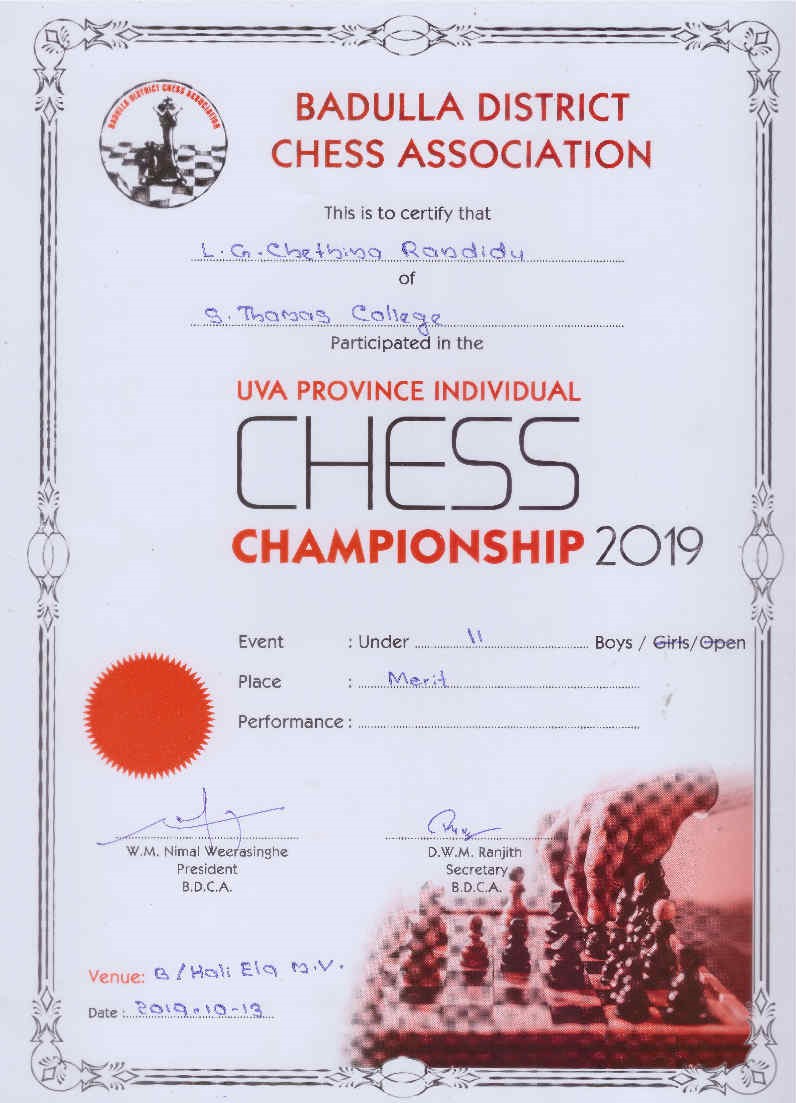 BADULLA DISTRICT CHESS ASSOCIATION
BADULLA DISTRICT
CHESS ASSOCIATION
This is to certify that
L.G.Chethina Randidu
of
S. Thomas College
Participated in the
UVA PROVINCE INDIVIDUAL
CHESS
CHAMPIONSHIP 2019
Event : Under 11 Boys / Girls/Open
Place : Merit
Performance :
W.M. Nimal Weerasinghe
President
B.D.C.A.
D.W.M. Ranjith
Secretary
B.D.C.A.
Venue: B/Hali Ela M.V.
Date : 2019-10-13